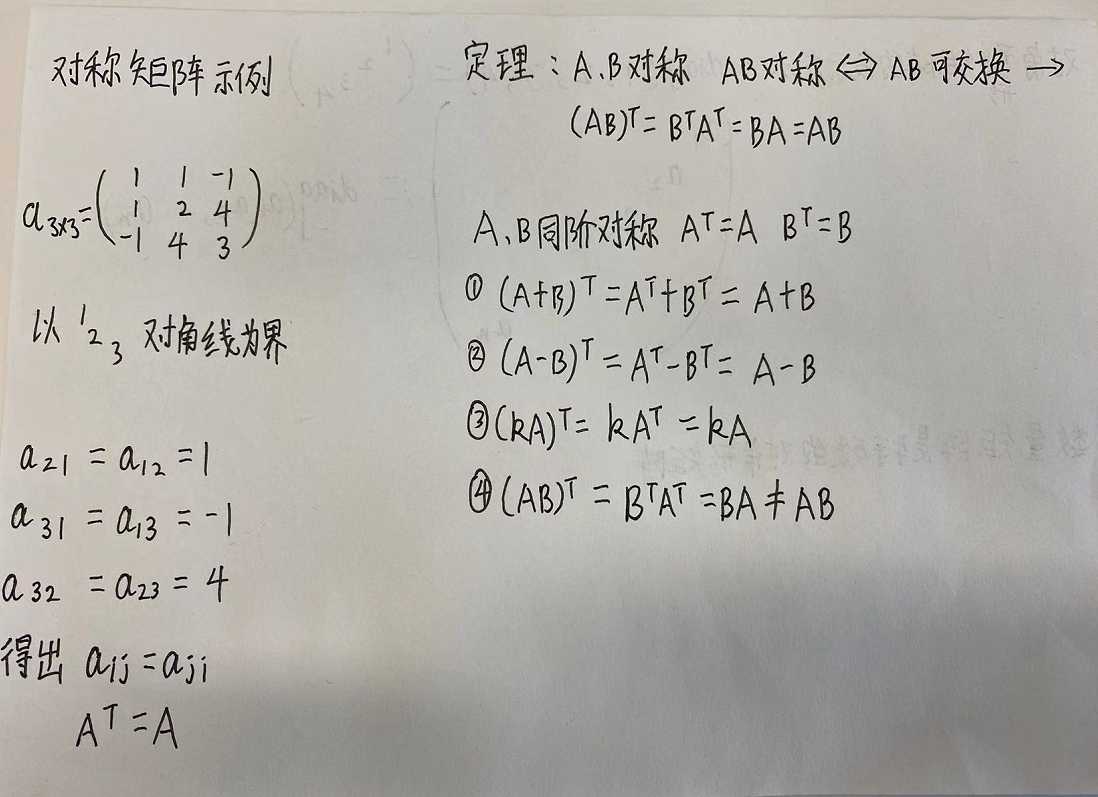 对称矩阵示例
a₃ₓ₃=
1 1 -1
1 2 4
-1 4 3
以 1 2 3 对角线为界
a₂₁ = a₁₂ = 1
a₃₁ = a₁₃ = -1
a₃₂ = a₂₃ = 4
得出 aᵢⱼ = aⱼᵢ
Aᵀ = A
定理：A、B对称 AB对称 ⇔ AB可交换 →
(AB)ᵀ = BᵀAᵀ = BA = AB
A、B同阶对称 Aᵀ=A Bᵀ=B
① (A+B)ᵀ = Aᵀ+Bᵀ = A+B
② (A-B)ᵀ = Aᵀ-Bᵀ = A-B
③ (kA)ᵀ = kAᵀ = kA
④ (AB)ᵀ = BᵀAᵀ = BA ≠ AB